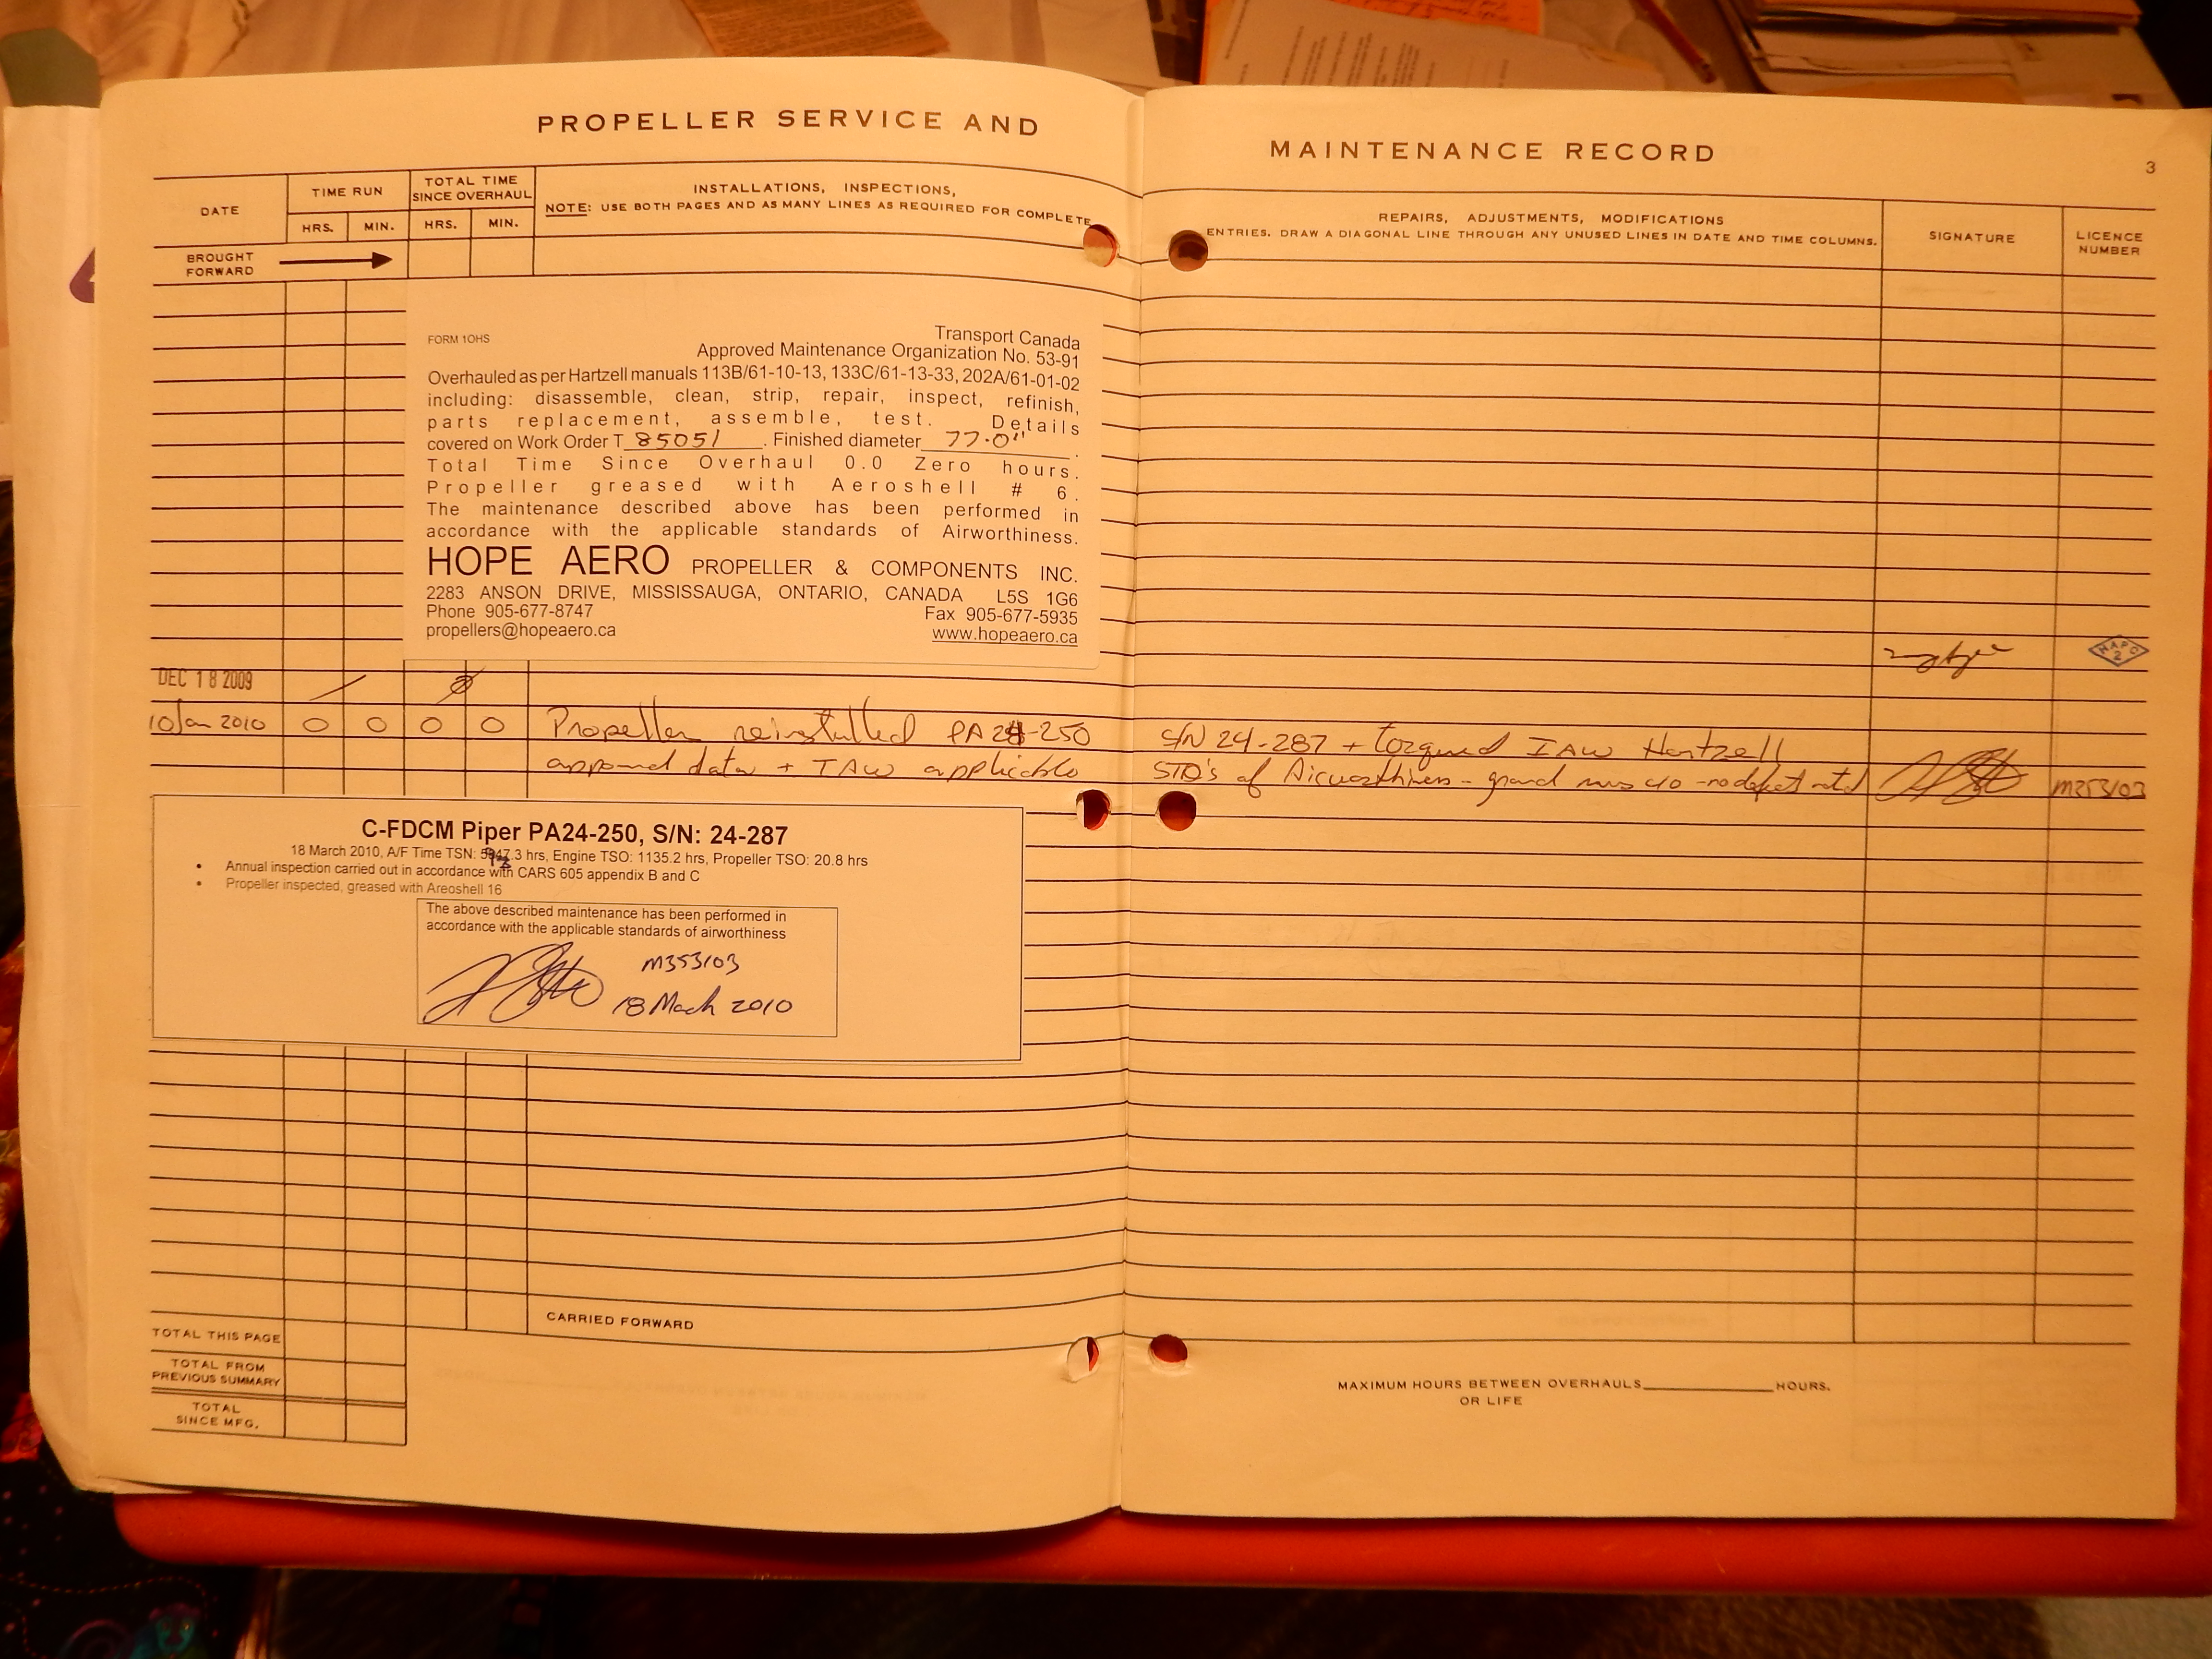 PROPELLER SERVICE AND
MAINTENANCE RECORD
3
DATE
TIME RUN
TOTAL TIME
SINCE OVERHAUL
HRS. MIN. HRS. MIN.
INSTALLATIONS, INSPECTIONS,
NOTE: USE BOTH PAGES AND AS MANY LINES AS REQUIRED FOR COMPLETE
REPAIRS, ADJUSTMENTS, MODIFICATIONS
ENTRIES. DRAW A DIAGONAL LINE THROUGH ANY UNUSED LINES IN DATE AND TIME COLUMNS.
SIGNATURE
LICENCE
NUMBER
BROUGHT
FORWARD
FORM 1OHS
Transport Canada
Approved Maintenance Organization No. 53-91
Overhauled as per Hartzell manuals 113B/61-10-13, 133C/61-13-33, 202A/61-01-02
including: disassemble, clean, strip, repair, inspect, refinish,
parts replacement, assemble, test. Details
covered on Work Order T 85051. Finished diameter 77.0".
Total Time Since Overhaul 0.0 Zero hours.
Propeller greased with Aeroshell # 6.
The maintenance described above has been performed in
accordance with the applicable standards of Airworthiness.
HOPE AERO PROPELLER & COMPONENTS INC.
2283 ANSON DRIVE, MISSISSAUGA, ONTARIO, CANADA L5S 1G6
Phone 905-677-8747 Fax 905-677-5935
propellers@hopeaero.ca www.hopeaero.ca
HAPC
2
DEC 18 2009
10 Jan 2010 0 0 0 0 Propeller reinstalled PA24-250 S/N 24-287 + torqued IAW Hartzell
data + IAW applicable STD's of Airworthiness - ground run c/o - no defect noted M353103
C-FDCM Piper PA24-250, S/N: 24-287
18 March 2010, A/F Time TSN: .3 hrs, Engine TSO: 1135.2 hrs, Propeller TSO: 20.8 hrs
• Annual inspection carried out in accordance with CARS 605 appendix B and C
• Propeller inspected, greased with Areoshell 16
The above described maintenance has been performed in
accordance with the applicable standards of airworthiness
M353103
18 March 2010
CARRIED FORWARD
TOTAL THIS PAGE
TOTAL FROM
PREVIOUS SUMMARY
TOTAL
SINCE MFG.
MAXIMUM HOURS BETWEEN OVERHAULS HOURS.
OR LIFE